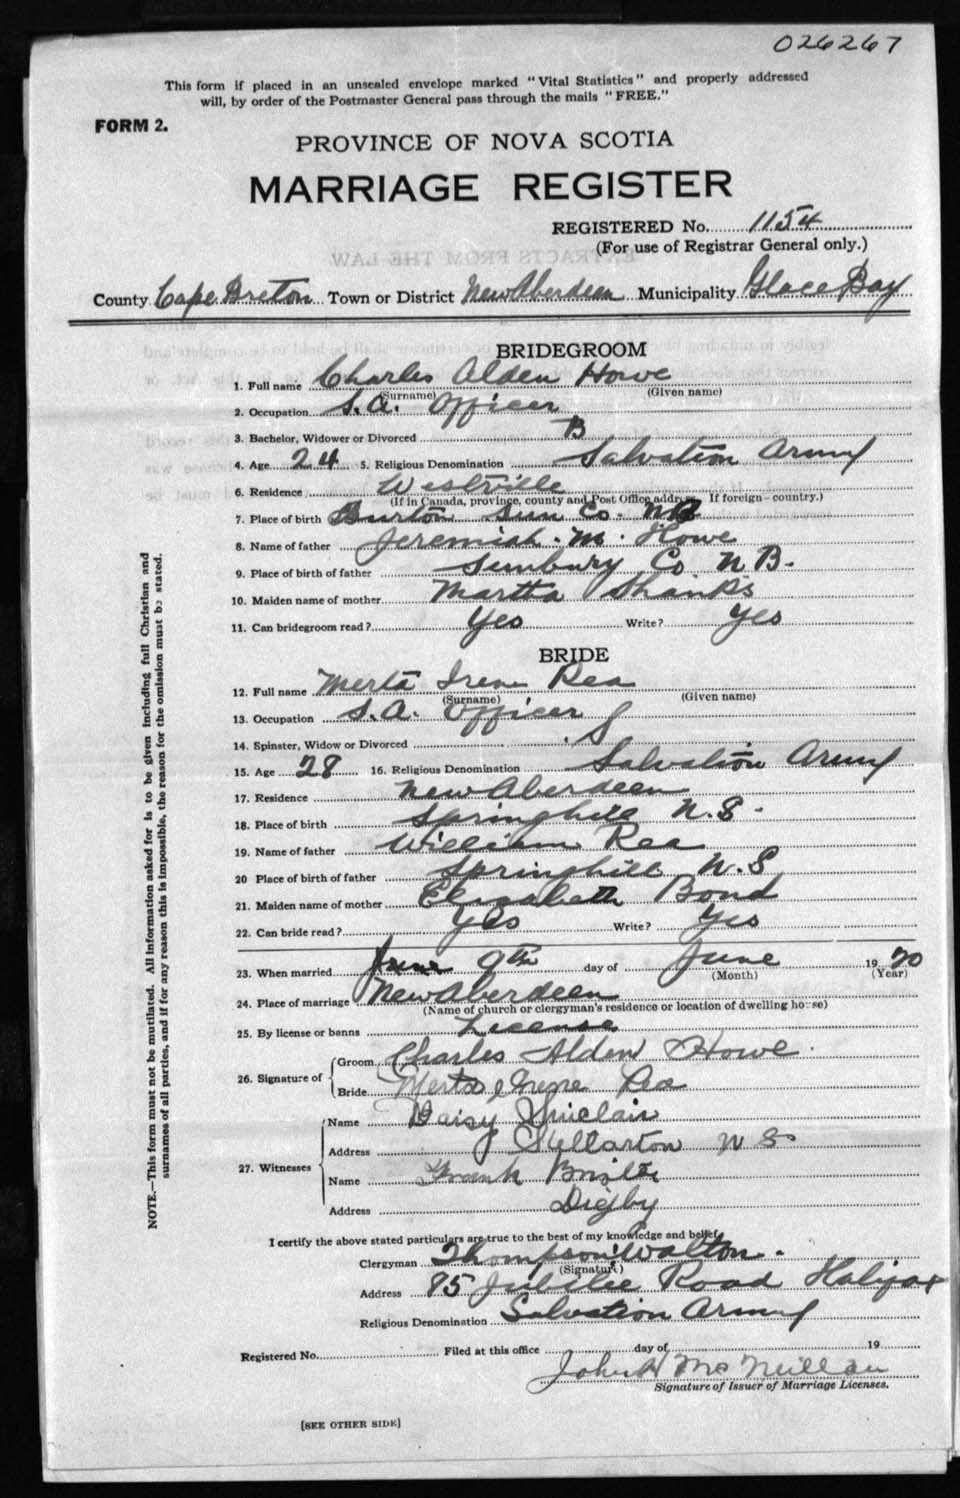 026267
This form if placed in an unsealed envelope marked "Vital Statistics" and properly addressed
will, by order of the Postmaster General pass through the mails "FREE."
FORM 2.
PROVINCE OF NOVA SCOTIA
MARRIAGE REGISTER
REGISTERED No. 1154
(For use of Registrar General only.)
County Cape Breton Town or District New Aberdeen Municipality Glace Bay
BRIDEGROOM
1. Full name Charles Alden Howe
(Surname) (Given name)
2. Occupation S.A. Officer
3. Bachelor, Widower or Divorced B
4. Age 24 5. Religious Denomination Salvation Army
6. Residence Westville
(If in Canada, province, county and Post Office address If foreign-country.)
7. Place of birth Burton Sun Co. NB
8. Name of father Jeremiah. M. Howe
9. Place of birth of father Sunbury Co N B.
10. Maiden name of mother Martha Shanks
11. Can bridegroom read? Yes Write? Yes
BRIDE
12. Full name Merta Irene Rea
(Surname) (Given name)
13. Occupation S.A. Officer
14. Spinster, Widow or Divorced S
15. Age 28 16. Religious Denomination Salvation Army
17. Residence New Aberdeen
18. Place of birth Springhill N.S.
19. Name of father William Rea
20 Place of birth of father Springhill N.S
21. Maiden name of mother Elizabeth Bond
22. Can bride read? Yes Write? Yes
23. When married June 9th day of June 1920
(Month) (Year)
24. Place of marriage New Aberdeen
(Name of church or clergyman's residence or location of dwelling house)
25. By license or banns License
26. Signature of Groom Charles Alden Howe.
Bride Merta Irene Rea
27. Witnesses Name Daisy Sinclair
Address Stellarton N S
Name Frank
Address Digby
I certify the above stated particulars are true to the best of my knowledge and belief,
Clergyman Thompson Walton.
(Signature)
Address 85 Jubilee Road Halifax
Religious Denomination Salvation Army
Registered No. Filed at this office day of 19
John H McNeillan
Signature of Issuer of Marriage Licenses.
[SEE OTHER SIDE]
NOTE.—This form must not be mutilated. All information asked for is to be given including full Christian and
surnames of all parties, and if for any reason this is impossible, the reason for the omission must be stated.